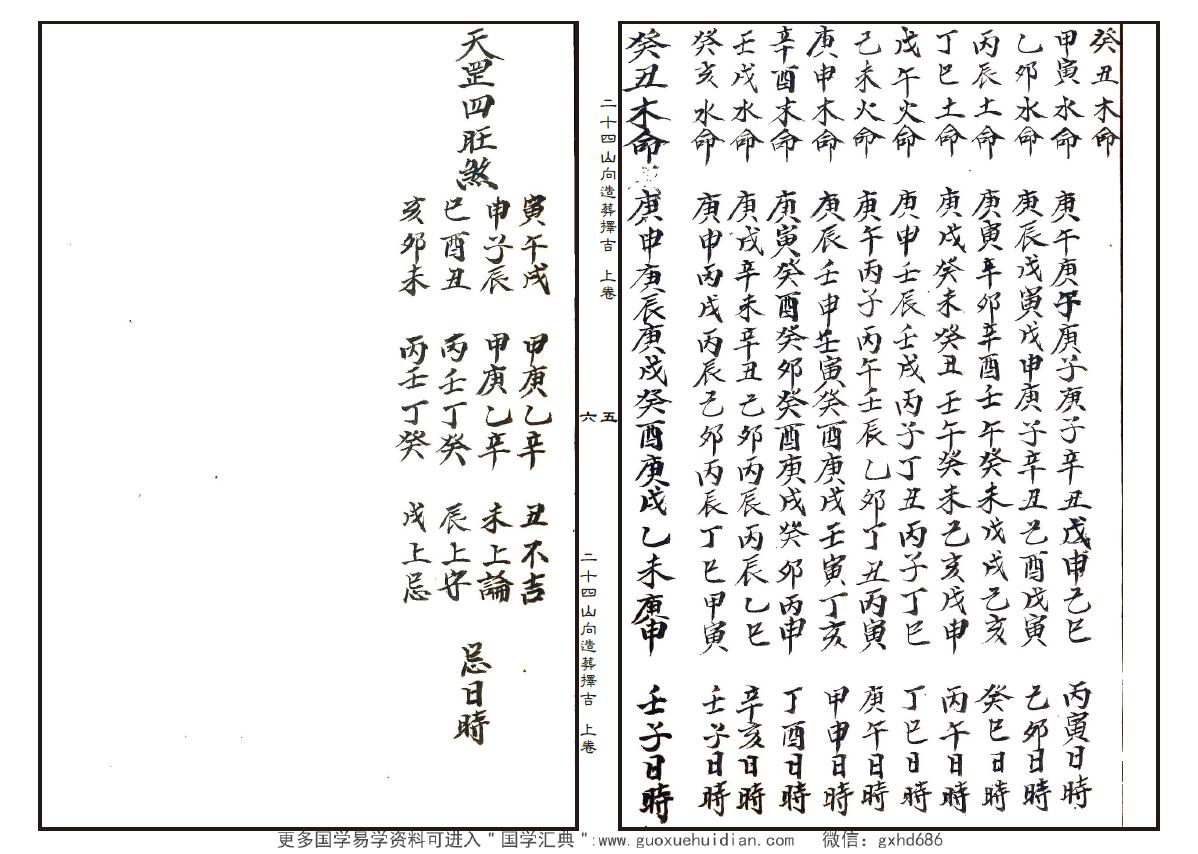 癸丑木命
甲寅水命 庚午庚午庚子庚子辛丑戊申己巳 丙寅日時
乙卯水命 庚辰戊寅戊申庚子辛丑己酉戊寅 己卯日時
丙辰土命 庚寅辛卯辛酉壬午癸未戊戌己亥 癸巳日時
丁巳土命 庚戌癸未癸丑壬午癸未己亥戊申 丙午日時
戊午火命 庚申壬辰壬戌丙子丁丑丙子丁巳 丁巳日時
己未火命 庚午丙子丙午壬辰乙卯丁丑丙寅 庚午日時
庚申木命 庚辰壬申壬寅癸酉庚戌壬寅丁亥 甲申日時
辛酉木命 庚寅癸酉癸卯癸酉庚戌癸卯丙申 丁酉日時
壬戌水命 庚戌辛未辛丑己卯丙辰丙辰乙巳 辛亥日時
癸亥水命 庚申丙戌丙辰己卯丙辰丁巳甲寅 壬子日時
癸丑木命 庚申庚辰庚戌癸酉庚戌乙未庚申 壬子日時
二十四山向造葬擇吉 上卷
五
天罡四旺煞
寅午戌 甲庚乙辛 丑不吉
申子辰 甲庚乙辛 未上論
巳酉丑 丙壬丁癸 辰上守
亥卯未 丙壬丁癸 戌上忌
忌日時
六
二十四山向造葬擇吉 上卷
更多国学易学资料可进入＂国学汇典＂:www.guoxuehuidian.com/ 微信：gxhd686